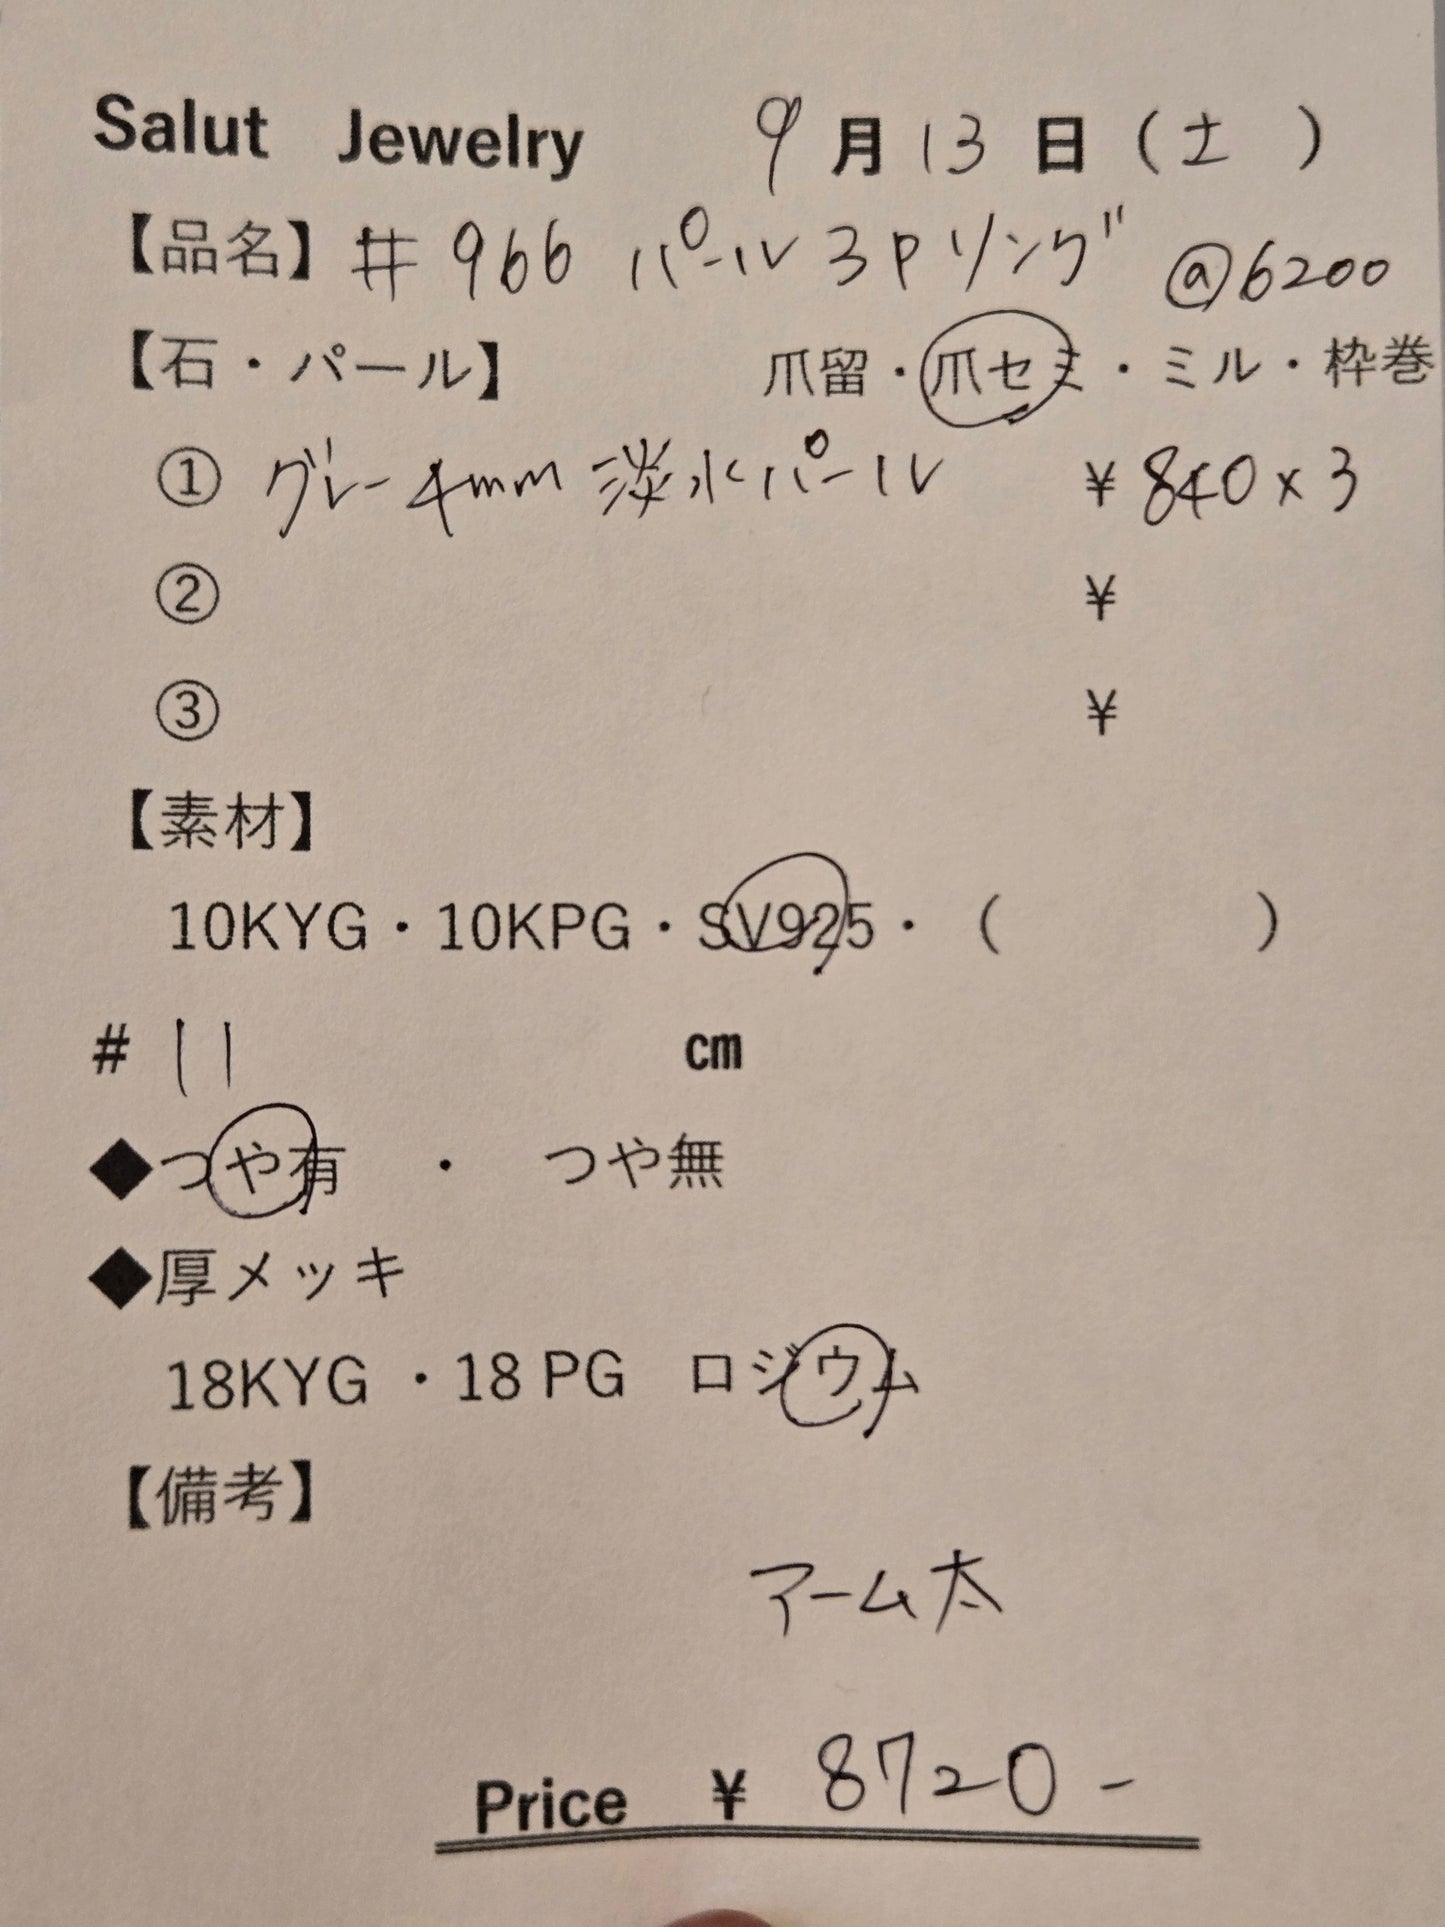 Salut Jewelry 9月13日(土)
【品名】#966 パール3Pリング @6200
【石・パール】 爪留・爪セミ・ミル・枠巻
① グレー4mm淡水パール ¥840×3
② ¥
③ ¥
【素材】
10KYG・10KPG・SV925・( )
# 11 cm
◆つや有 ・ つや無
◆厚メッキ
18KYG ・18 PG ロジウム
【備考】
アーム太
Price ¥ 8720-